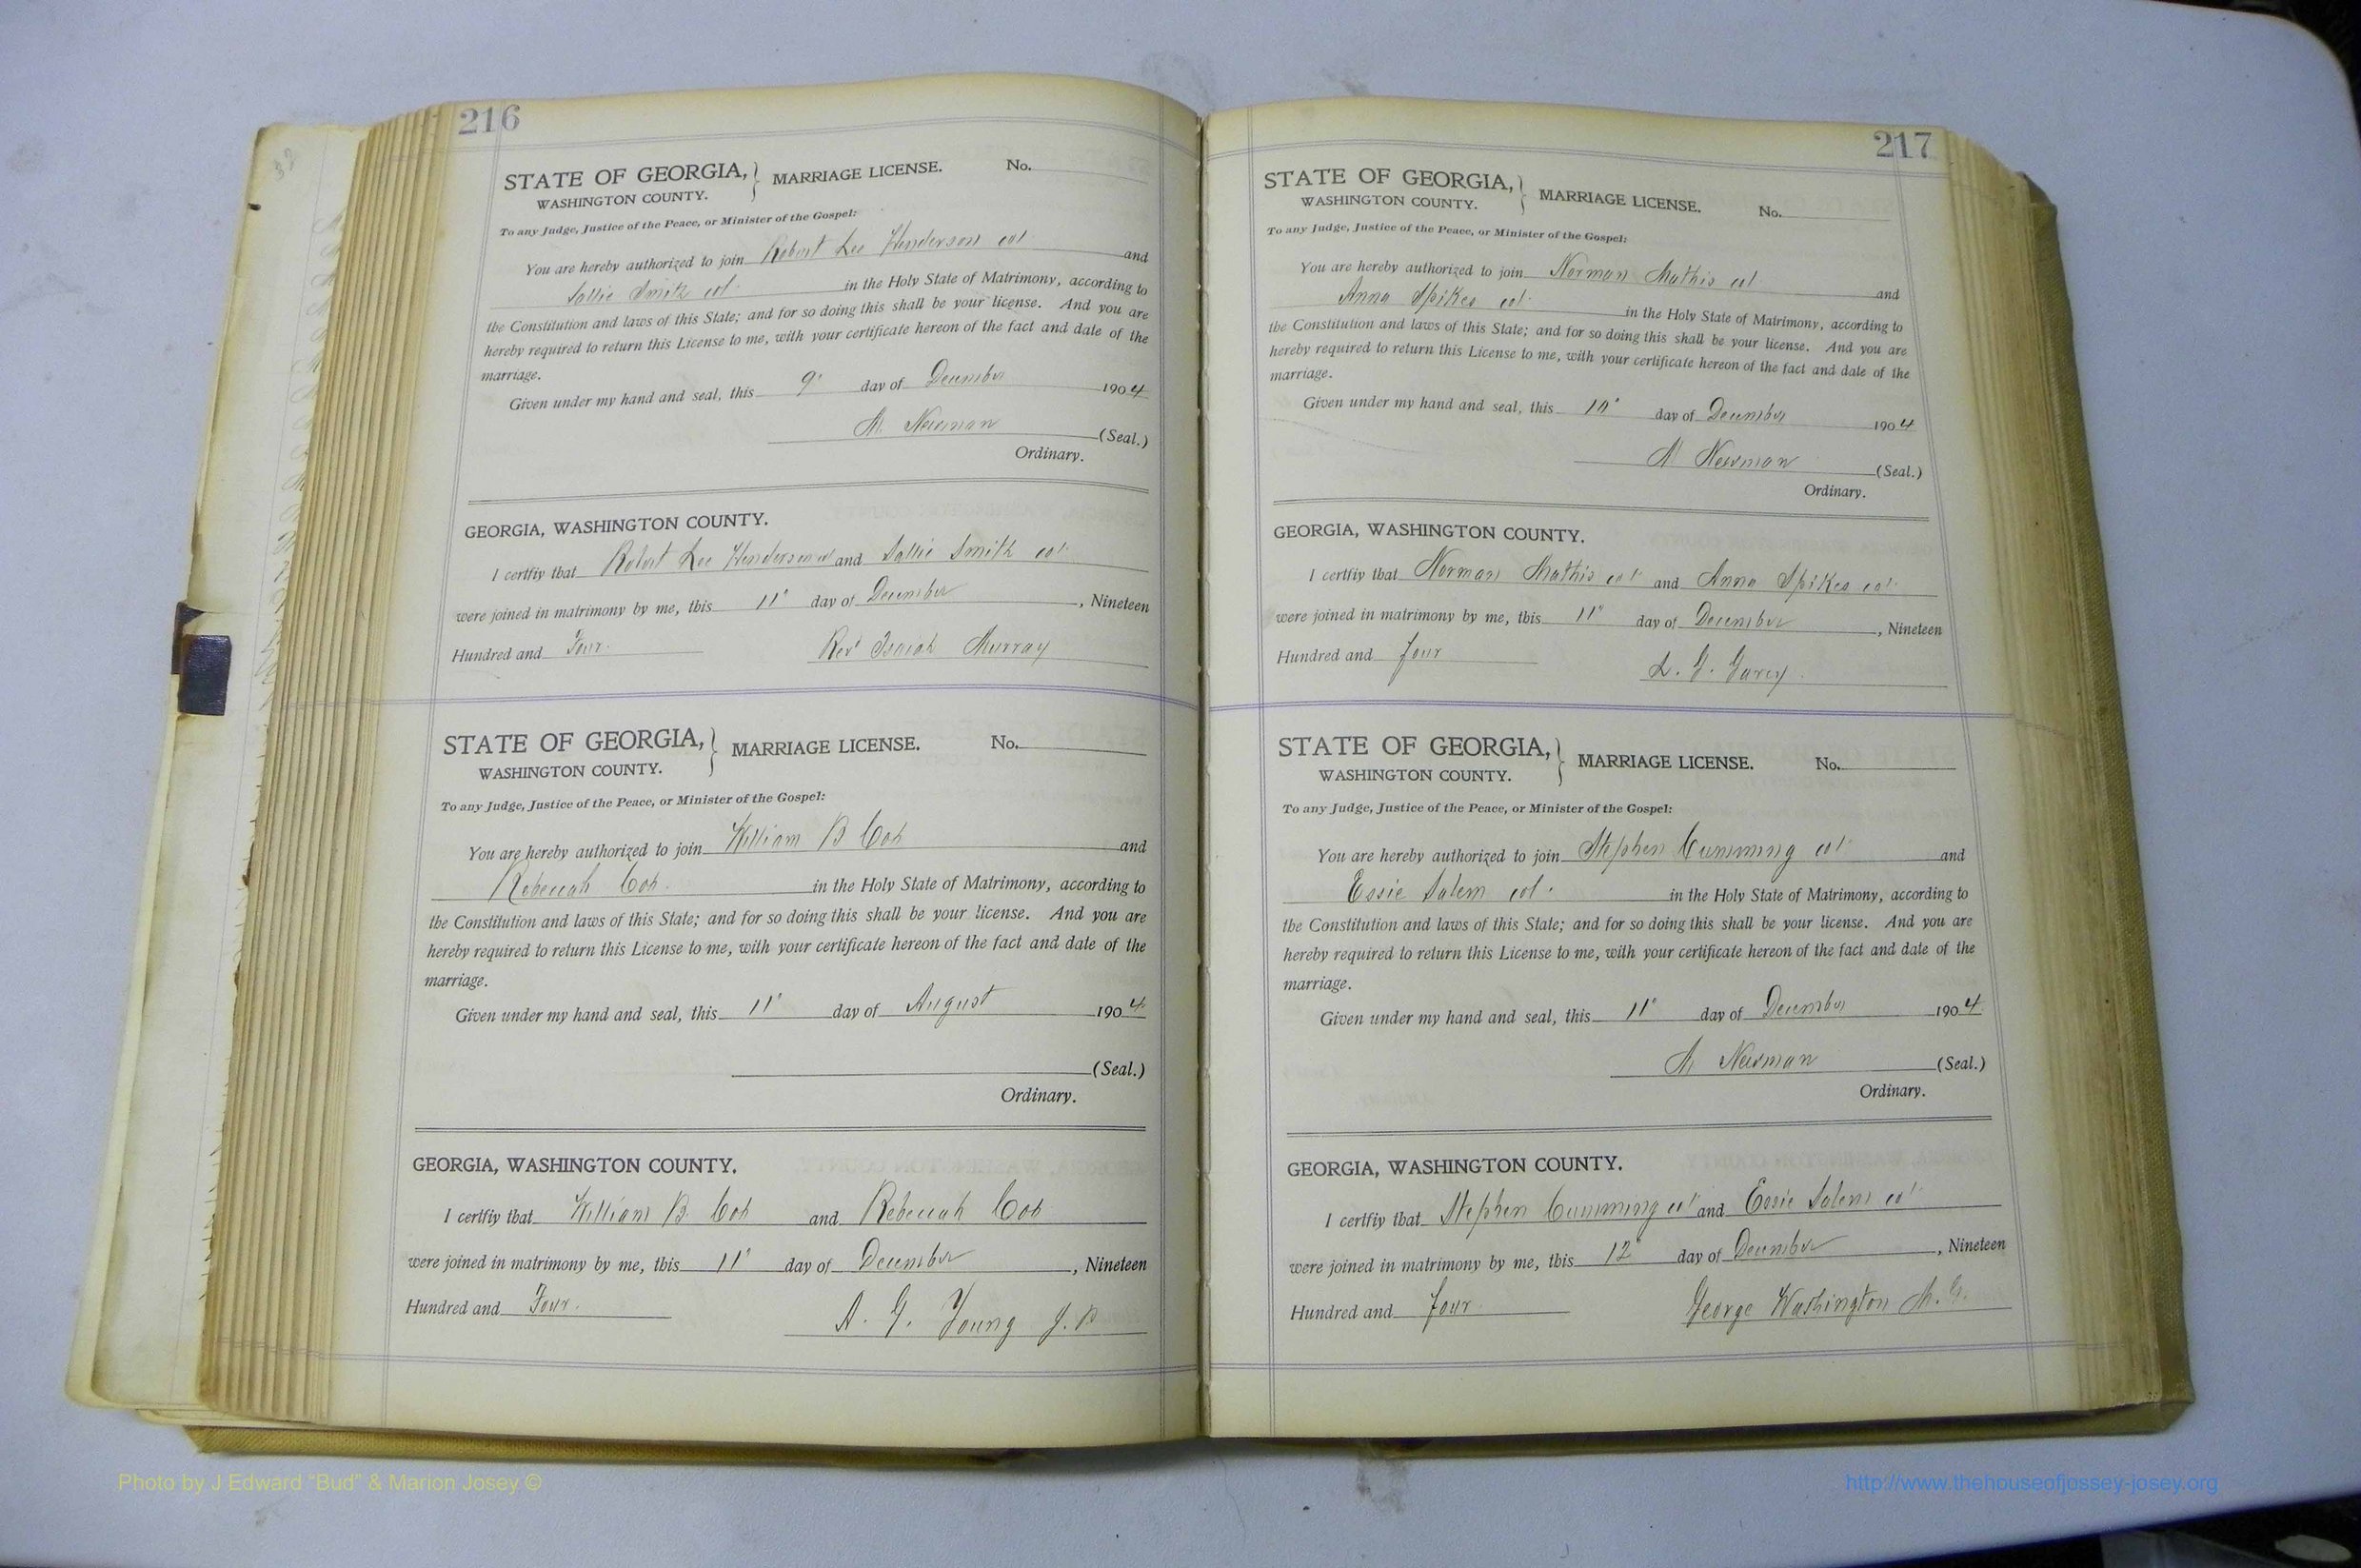 216
STATE OF GEORGIA, } MARRIAGE LICENSE. No.
WASHINGTON COUNTY.
To any Judge, Justice of the Peace, or Minister of the Gospel:
You are hereby authorized to join Robert Lee Henderson col and
Sallie Smith col in the Holy State of Matrimony, according to
the Constitution and laws of this State; and for so doing this shall be your license. And you are
hereby required to return this License to me, with your certificate hereon of the fact and date of the
marriage.
Given under my hand and seal, this 9" day of December 1904
M. Newman (Seal.)
Ordinary.
GEORGIA, WASHINGTON COUNTY.
I certfiy that Robert Lee Henderson col and Sallie Smith col
were joined in matrimony by me, this 11" day of December, Nineteen
Hundred and Four. Rev Isaiah Murray
STATE OF GEORGIA, } MARRIAGE LICENSE. No.
WASHINGTON COUNTY.
To any Judge, Justice of the Peace, or Minister of the Gospel:
You are hereby authorized to join William B and
Rebecah in the Holy State of Matrimony, according to
the Constitution and laws of this State; and for so doing this shall be your license. And you are
hereby required to return this License to me, with your certificate hereon of the fact and date of the
marriage.
Given under my hand and seal, this 11" day of August 1904
(Seal.)
Ordinary.
GEORGIA, WASHINGTON COUNTY.
I certfiy that William B and Rebecah
were joined in matrimony by me, this 11" day of December, Nineteen
Hundred and Four. A. G. Young J. P
217
STATE OF GEORGIA, } MARRIAGE LICENSE. No.
WASHINGTON COUNTY.
To any Judge, Justice of the Peace, or Minister of the Gospel:
You are hereby authorized to join Norman Mathis col and
Anna Spikes col in the Holy State of Matrimony, according to
the Constitution and laws of this State; and for so doing this shall be your license. And you are
hereby required to return this License to me, with your certificate hereon of the fact and date of the
marriage.
Given under my hand and seal, this 10" day of December 1904
M Newman (Seal.)
Ordinary.
GEORGIA, WASHINGTON COUNTY.
I certfiy that Norman Mathis col and Anna Spikes col
were joined in matrimony by me, this 11" day of December, Nineteen
Hundred and four L. G.
STATE OF GEORGIA, } MARRIAGE LICENSE. No.
WASHINGTON COUNTY.
To any Judge, Justice of the Peace, or Minister of the Gospel:
You are hereby authorized to join Stephen Cumming col and
Essie Salem col in the Holy State of Matrimony, according to
the Constitution and laws of this State; and for so doing this shall be your license. And you are
hereby required to return this License to me, with your certificate hereon of the fact and date of the
marriage.
Given under my hand and seal, this 11" day of December 1904
M. Newman (Seal.)
Ordinary.
GEORGIA, WASHINGTON COUNTY.
I certfiy that Stephen Cumming col and Essie Salem col
were joined in matrimony by me, this 12" day of December, Nineteen
Hundred and four George Washington M. G.
Photo by J Edward "Bud" & Marion Josey ©
http://www.thehouseofjossey-josey.org